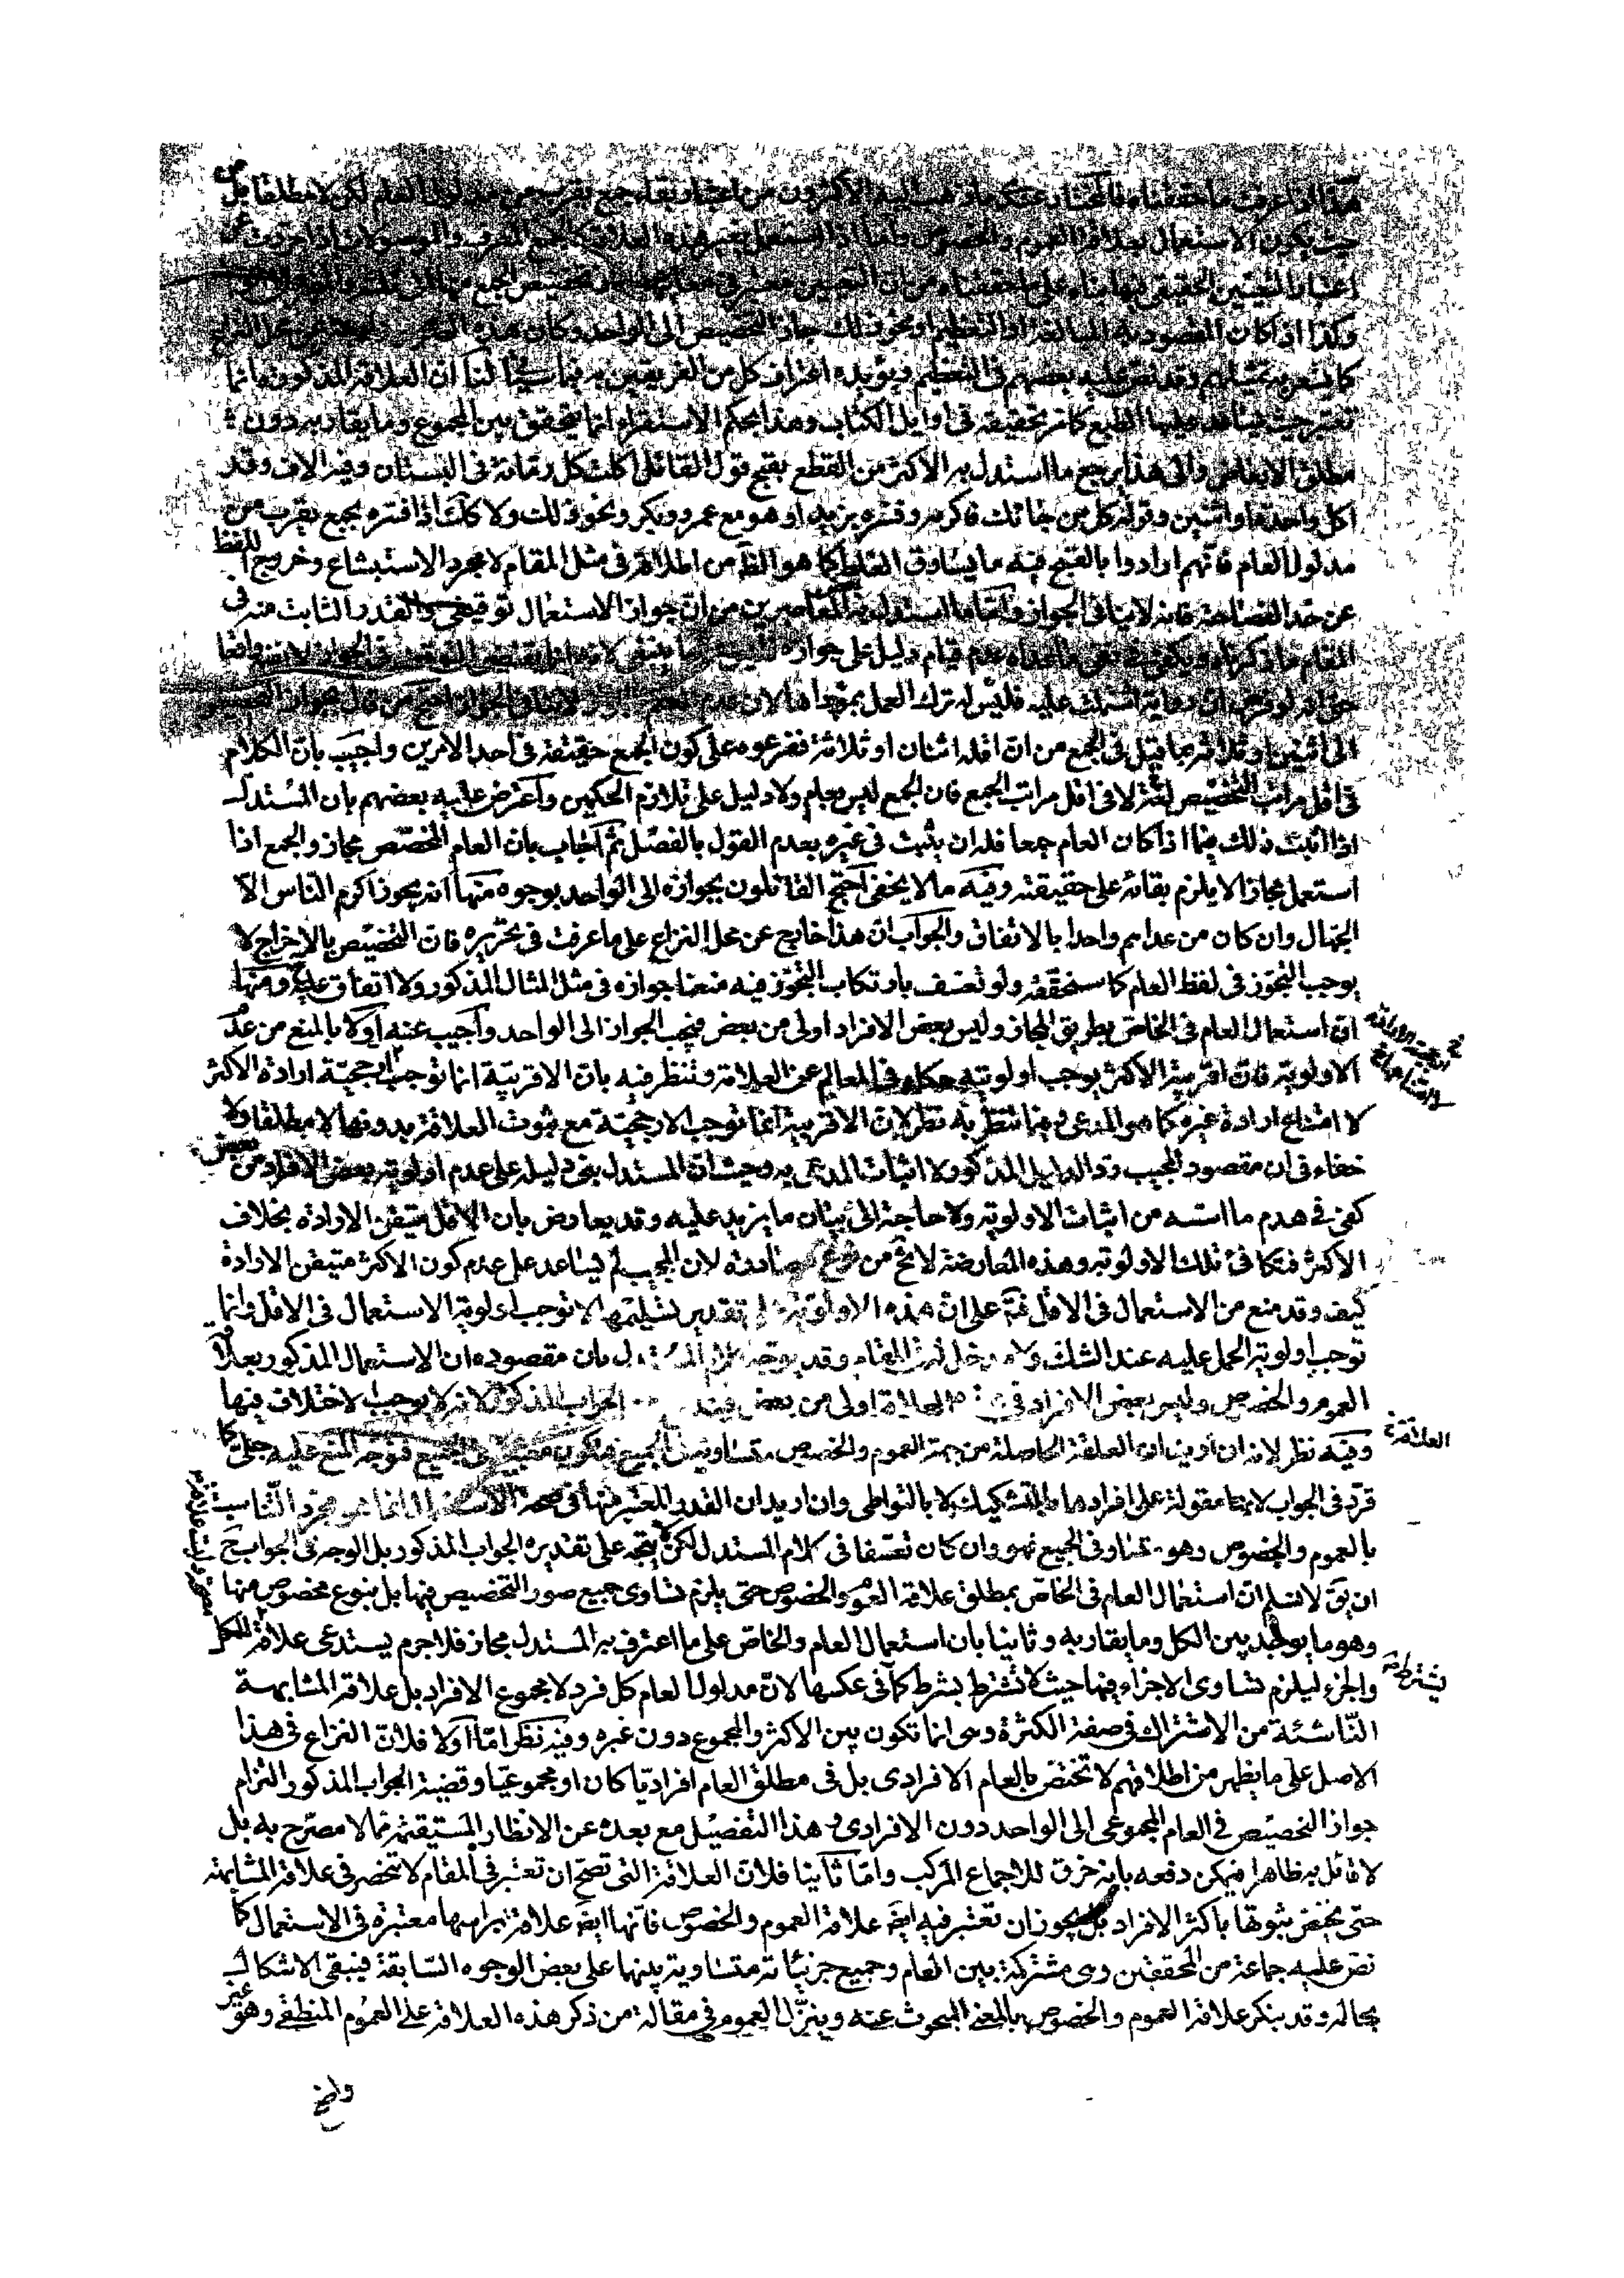 هذا اذا عرفت ما حققناه فالمختار عندنا ما ذهب اليه الاكثرون من اعتبار بقاء جمع يقرب من مدلول العام لكن لا مطلقا بل
حيث يكون الاستعمال بعلاقة العموم والخصوص واما اذا استعمل بغير هذه العلاقة كالجمع المعرف والموصولات اذا جردت عن
اعتبار التعيين الحقيقي فيها بناء على ما حققناه من ان التعيين معتبر في
وكذا اذا كان المقصود به المبالغة او التعظيم او نحو ذلك جاز التخصيص الى الواحد وكان هذه عن محل النزاع
كما يشعر به تمثيلهم وقد نص عليه بعضهم في التعظيم ويؤيده اعتراف كل من الفريقين به فيما سيأتي لنا ان العلاقة المذكورة انما
تعتبر حيث يساعد عليها الطبع كما مر تحقيقه في اوايل الكتاب وهذا بحكم الاستقراء انما يتحقق بين المجموع وما يقاربه دون
مطلق الابعاض والى هذا يرجع ما استدل به الاكثر من القطع بقبح قول القائل اكلت كل رمانة في البستان وفيه الاف وقد
اكل واحدة او اثنتين وقوله كل من جائك فاكرمه وفسره بزيد او هو مع عمرو وبكر ونحو ذلك ولا كذلك اذا فسره بجمع يقرب من
مدلول العام فانهم ارادوا بالقبح فيه ما يساوق الغلط كما هو الظ من اطلاقه في مثل المقام لا مجرد الاستبشاع وخروج اللفظ
عن حد الفصاحة فانه لا ينافى الجواز واما ما استدل به بعض المعاصرين من ان جواز الاستعمال توقيفى والقدر الثابت منه في
المقام ما ذكرناه ويكفي في نفي ما عداه عدم قيام دليل على جوازه
عليه فليس له ترك العمل بمؤداها لان عدم
الى اثنين او ثلاثة بما قيل في الجمع من ان اقله اثنان او ثلاثة ففرعوه على كون الجمع حقيقة في احد الامرين واجيب بان الكلام
في اقل مراتب التخصيص لا في اقل مراتب الجمع فان الجمع ليس بعام ولا دليل على تلازم الحكمين واعترض عليه بعضهم بان المستدل
اذا اثبت ذلك فيما اذا كان العام جمعا فله ان يثبت في غيره بعدم القول بالفصل ثم اجاب بان العام المخصص مجاز والجمع اذا
استعمل مجازا لا يلزم بقائه على حقيقته وفيه ما لا يخفى احتج القائلون بجوازه الى الواحد بوجوه منها انه يجوز اكرم الناس الا
الجهال وان كان من عداهم واحدا بالاتفاق والجواب ان هذا خارج عن محل النزاع على ما عرفت في تحريره فان التخصيص بالاخراج لا
يوجب التجوز في لفظ العام كما سنحققه ولو تعسف بارتكاب التجوز فيه منعنا جوازه في مثل المثال المذكور ولا اتفاق عليه ومنها
ان استعمال العام في الخاص بطريق المجاز وليس بعض الافراد اولى من بعض فيجب الجواز الى الواحد واجيب عنه اولا بالمنع من عدم
الاولوية فان اقربية الاكثر يوجب اولويته حكاه في المعالم عن العلامة وتنظر فيه بان الاقربية انما توجب ارجحية ارادة الاكثر
لا امتناع ارادة غيره كما هو المدعى وفيما تنظر به نظر لان الاقربية انما توجب الارجحية مع ثبوت العلاقة بدونها لا مطلقا ولا
خفاء في ان مقصود المجيب رد الدليل المذكور لا اثبات المدعى به وحيث ان المستدل بنى دليله على عدم اولوية بعض الافراد من بعض
كفى في هدم ما اسسه من اثبات الاولوية ولا حاجة الى بيان ما يزيد عليه وقد يعارض بان الاقل متيقن الارادة بخلاف
الاكثر فتكافئ تلك الاولوية وهذه المعارضة لا تخ من نوع مصادرة لان المجيب لم يساعد على عدم كون الاكثر متيقن الارادة
كيف وقد منع من الاستعمال في الاقل ثمة على ان هذه الاولوية على تقدير تسليمها لا توجب اولوية الاستعمال في الاقل وانما
توجب اولوية الحمل عليه عند الشك ولا مدخل له في المقام وقد يوجه كلام المستدل بان مقصوده ان الاستعمال المذكور بعلاقة
العموم والخصوص وليس بعض الافراد في هذه العلاقة اولى من بعض الجواب المذكور لانه لا يوجب الاختلاف فيها
وفيه نظر لانه ان اريد ان العلقة الحاصلة من جهة العموم والخصوص متساوية في الجميع فيكون معتبرة في الجميع فتوجه المنع عليه جلى كما
قرر في الجواب لانها مقولة على افرادها بالتشكيك لا بالتواطى وان اريد ان القدر المعتبر منها في صحة الاستعمال انما هو مجرد التناسب
بالعموم والخصوص وهو متساو في الجميع فهو وان كان تعسفا في كلام المستدل لكن لا يتجه على تقديره الجواب المذكور بل الوجه في الجواب ح
ان يق لا نسلم ان استعمال العام في الخاص بمطلق علاقة العموم والخصوص حتى يلزم تساوى جميع صور التخصيص فيها بل بنوع مخصوص منها
وهو ما يوجد بين الكل وما يقاربه وثانيا بان استعمال العام والخاص على ما اعترف به المستدل مجاز فلا جرم يستدعى علاقة الكل
والجزء ليلزم تساوى الاجزاء فيها حيث لا تشترط بشرط كما في عكسها لان مدلول العام كل فرد لا مجموع الافراد بل علاقة المشابهة
الناشئة من الاشتراك في صفة الكثرة وهى انما تكون بين الاكثر والمجموع دون غيره وفيه نظر اما اولا فلان النزاع في هذا
الاصل على ما يظهر من اطلاقهم لا تختص بالعام الافرادى بل في مطلق العام افراديا كان او مجموعيا وقضية الجواب المذكور التزام
جواز التخصيص في العام المجموعى الى الواحد دون الافرادى وهذا التفصيل مع بعده عن الانظار المستقيمة مما لا مصرح به بل
لا قائل به ظاهرا فيمكن دفعه بانه خرق للاجماع المركب واما ثانيا فلان العلاقة التى تصح ان تعتبر في المقام لا تنحصر في علاقة المشابهة
حتى يختص ثبوتها باكثر الافراد بل يجوز ان تعتبر فيه ايضا علاقة العموم والخصوص فانها ايضا علاقة براسها معتبرة في الاستعمال كما
نص عليه جماعة من المحققين وهى مشتركة بين العام وجميع جزئياته متساوية بينها على بعض الوجوه السابقة فيبقى الاشكال
بحاله وقد ينكر علاقة العموم والخصوص بالمعنى المبحوث عنه وينزل العموم في مقالة من ذكر هذه العلاقة على العموم المنطقى وهو غير
العلاقة
يشترط
واضح